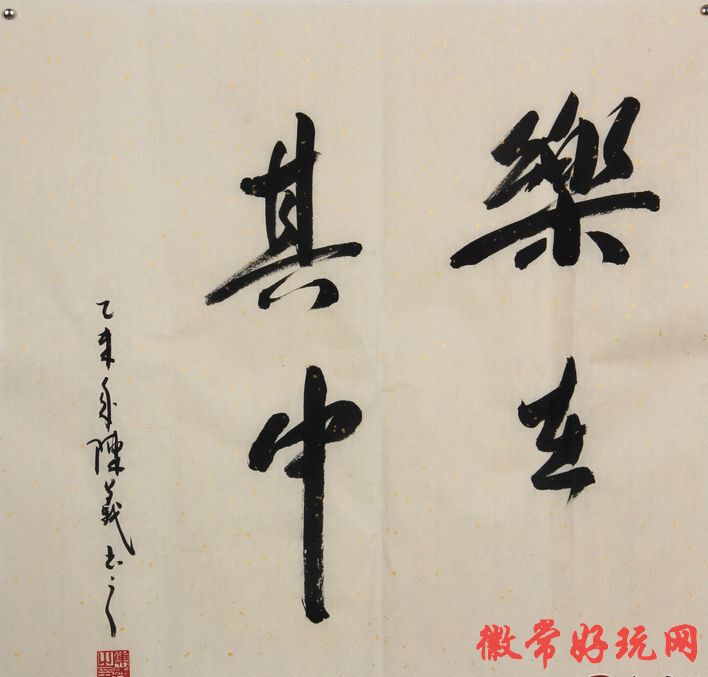 樂在
其中
乙未年陳義書之
徽常好玩网